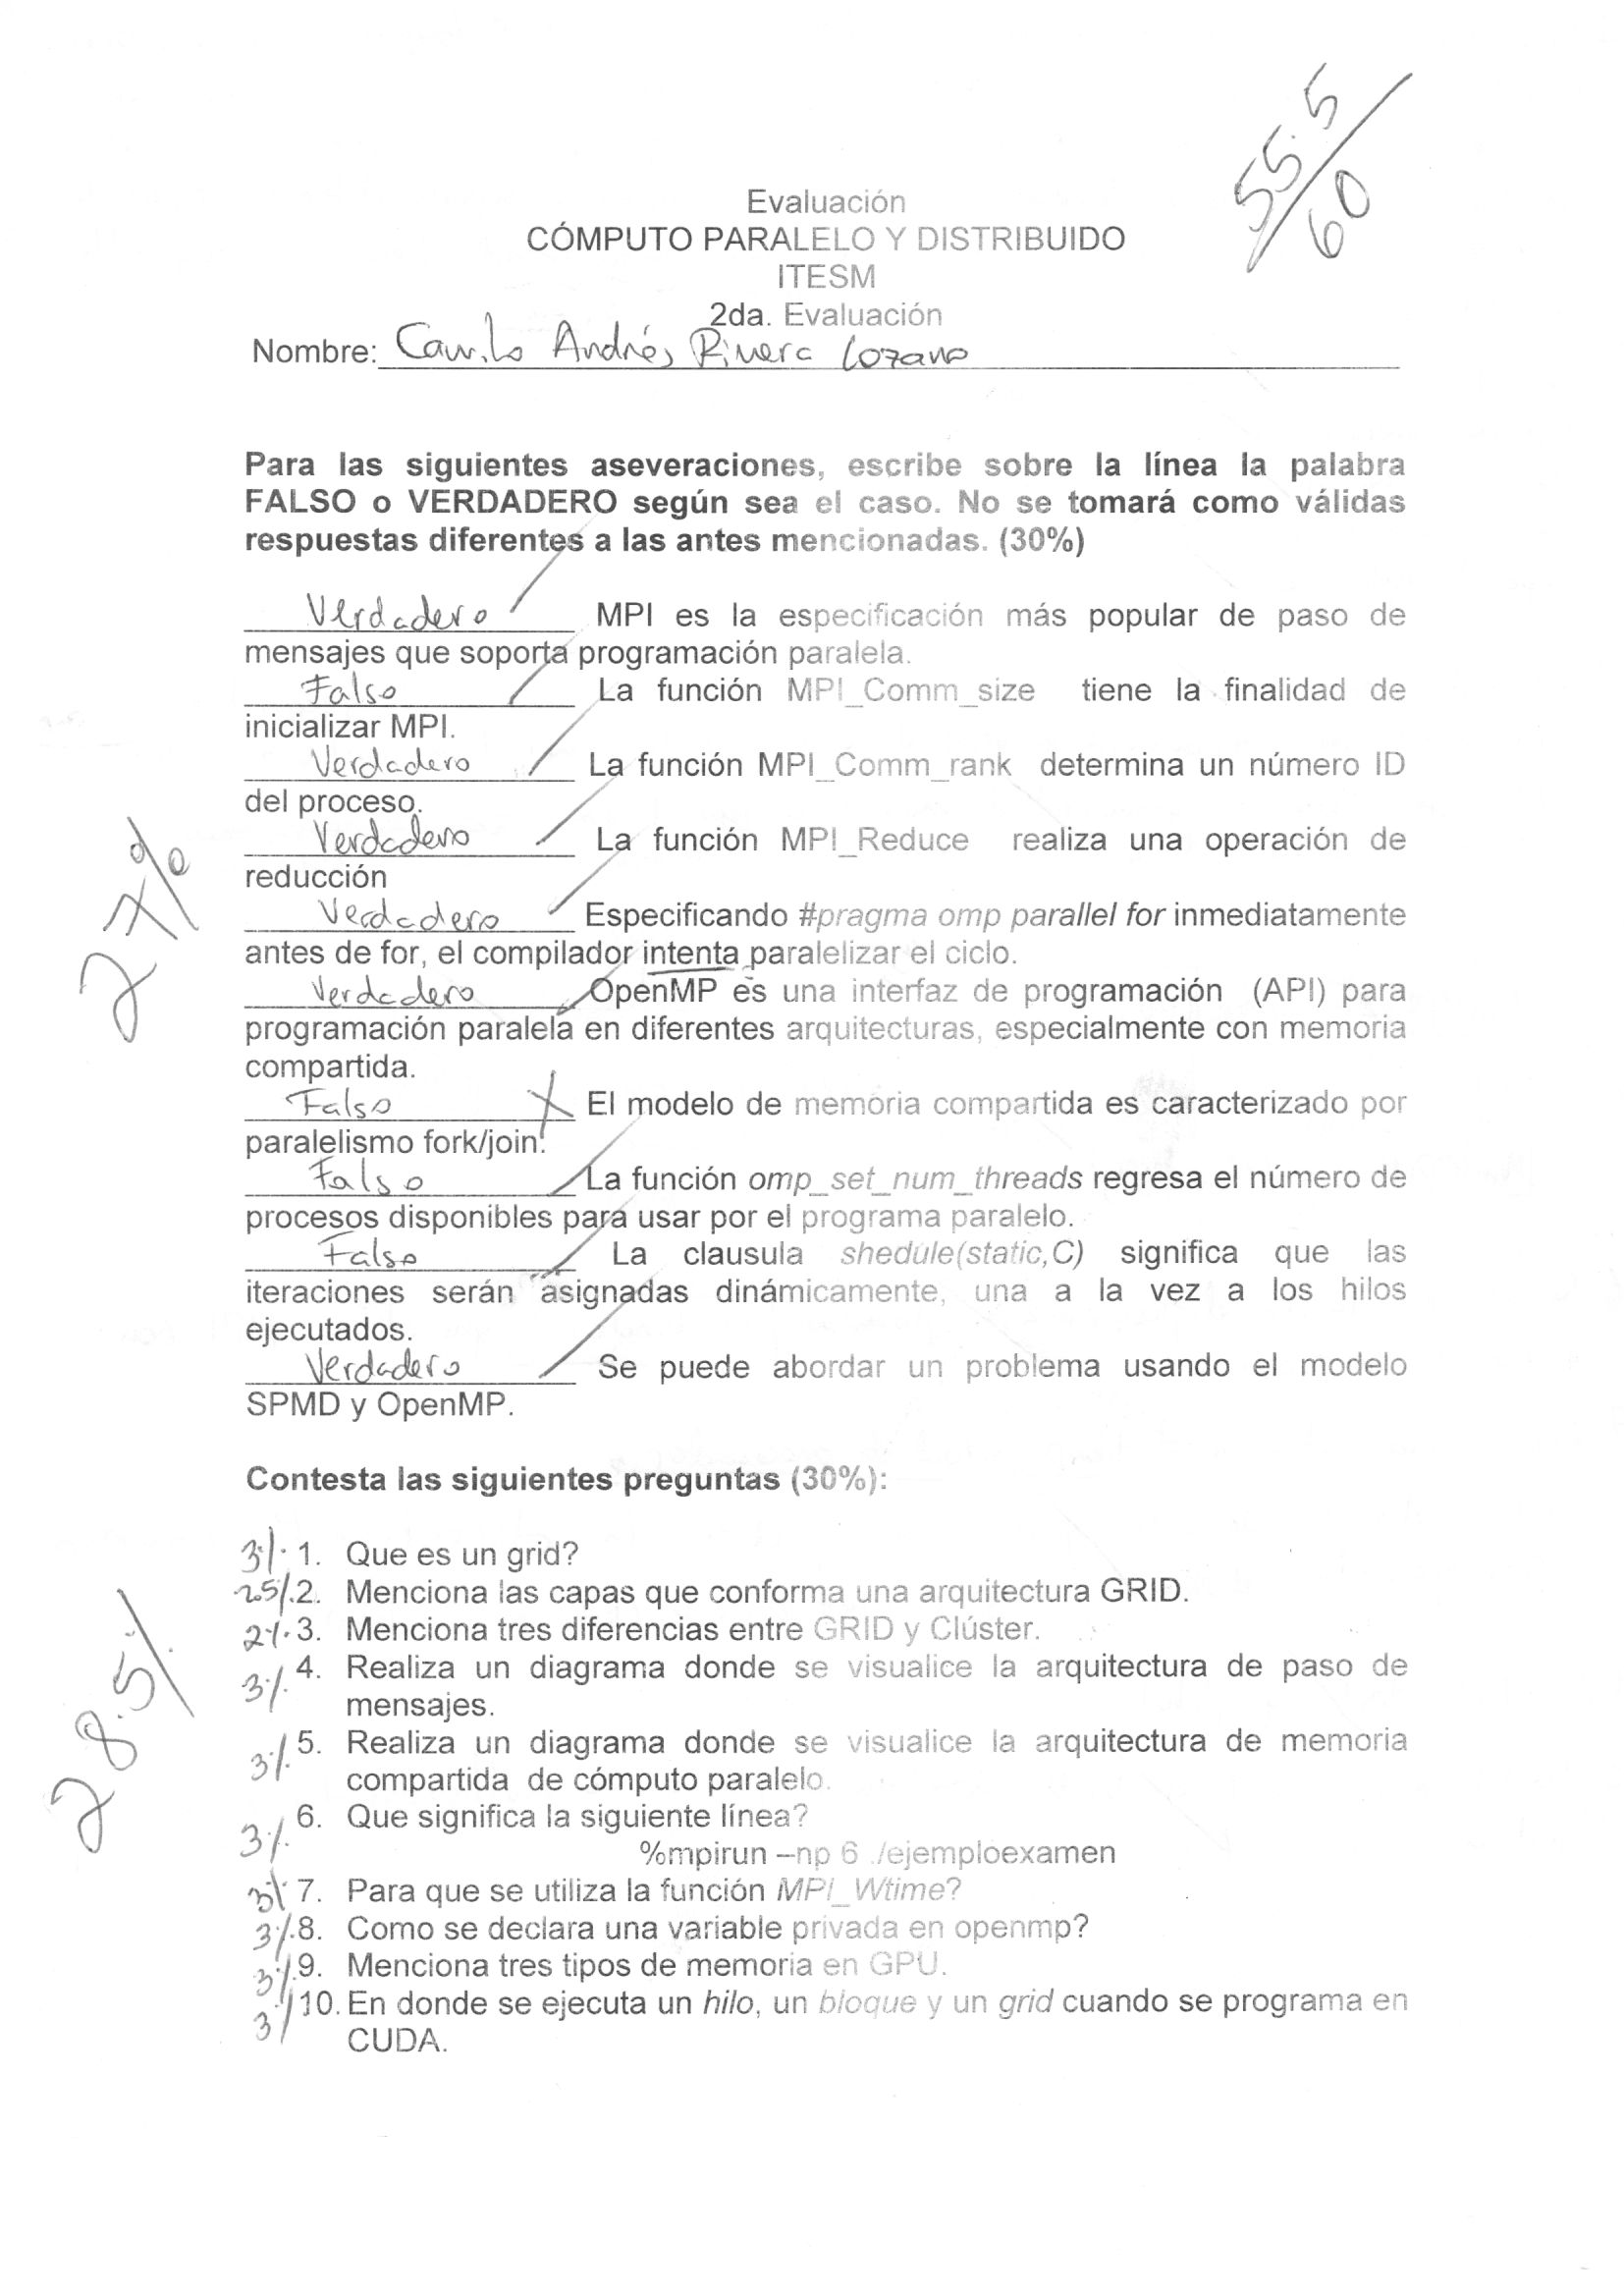 55.5/60
Evaluación
CÓMPUTO PARALELO Y DISTRIBUIDO
ITESM
2da. Evaluación
Nombre: Camilo Andrés Rivera Lozano
Para las siguientes aseveraciones, escribe sobre la línea la palabra
FALSO o VERDADERO según sea el caso. No se tomará como válidas
respuestas diferentes a las antes mencionadas. (30%)
Verdadero MPI es la especificación más popular de paso de
mensajes que soporta programación paralela.
Falso La función MPI_Comm_size tiene la finalidad de
inicializar MPI.
Verdadero La función MPI_Comm_rank determina un número ID
del proceso.
Verdadero La función MPI_Reduce realiza una operación de
reducción
27%
Verdadero Especificando #pragma omp parallel for inmediatamente
antes de for, el compilador intenta paralelizar el ciclo.
Verdadero OpenMP es una interfaz de programación (API) para
programación paralela en diferentes arquitecturas, especialmente con memoria
compartida.
Falso El modelo de memoria compartida es caracterizado por
paralelismo fork/join.
Falso La función omp_set_num_threads regresa el número de
procesos disponibles para usar por el programa paralelo.
Falso La clausula shedule(static,C) significa que las
iteraciones serán asignadas dinámicamente, una a la vez a los hilos
ejecutados.
Verdadero Se puede abordar un problema usando el modelo
SPMD y OpenMP.
Contesta las siguientes preguntas (30%):
3% 1. Que es un grid?
2.5% 2. Menciona las capas que conforma una arquitectura GRID.
2% 3. Menciona tres diferencias entre GRID y Clúster.
3% 4. Realiza un diagrama donde se visualice la arquitectura de paso de
mensajes.
28.5%
3% 5. Realiza un diagrama donde se visualice la arquitectura de memoria
compartida de cómputo paralelo.
3% 6. Que significa la siguiente línea?
%mpirun –np 6 ./ejemploexamen
3% 7. Para que se utiliza la función MPI_Wtime?
3% 8. Como se declara una variable privada en openmp?
3% 9. Menciona tres tipos de memoria en GPU.
3% 10. En donde se ejecuta un hilo, un bloque y un grid cuando se programa en
CUDA.